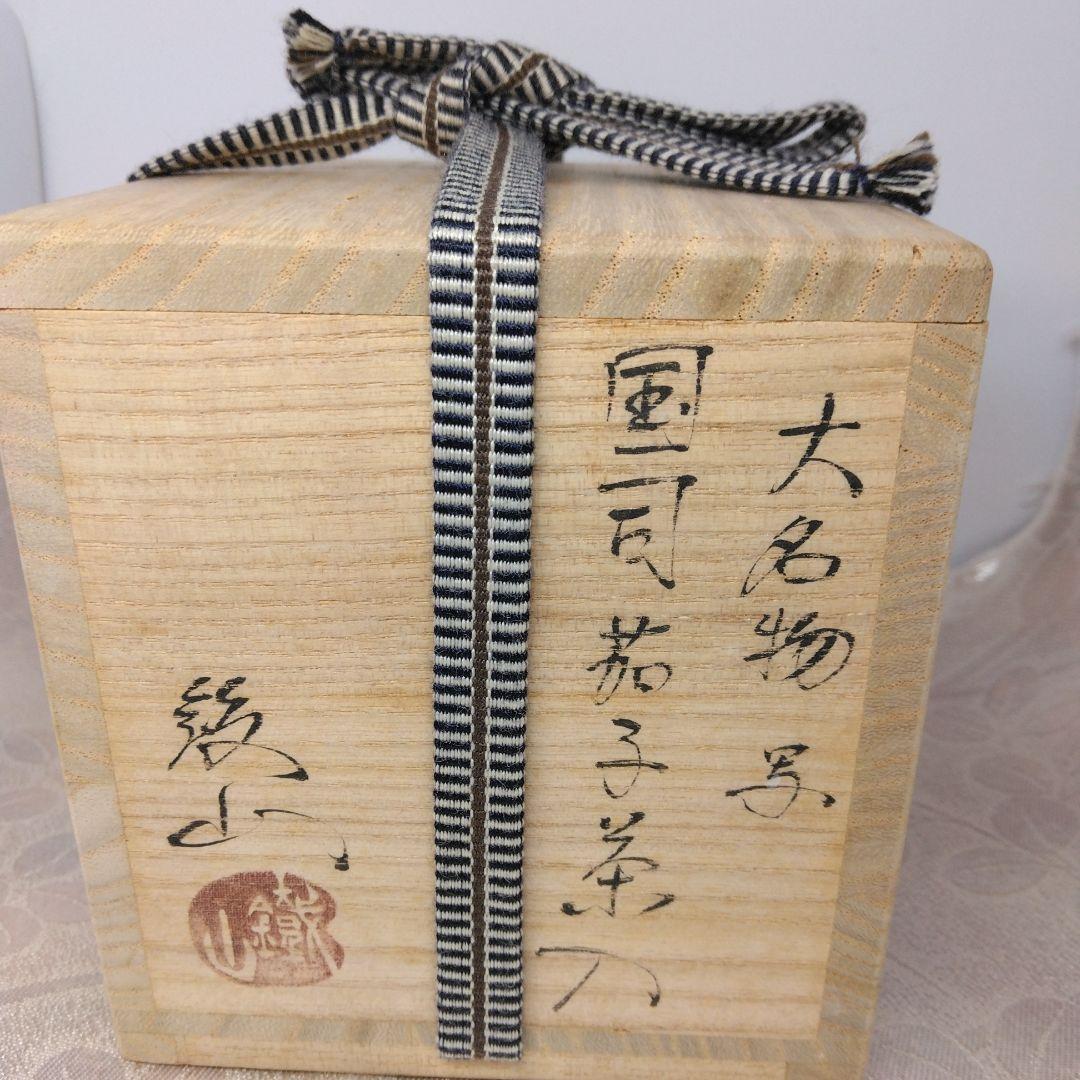 大名物 写
国司茄子茶入
鐵山
鐵山